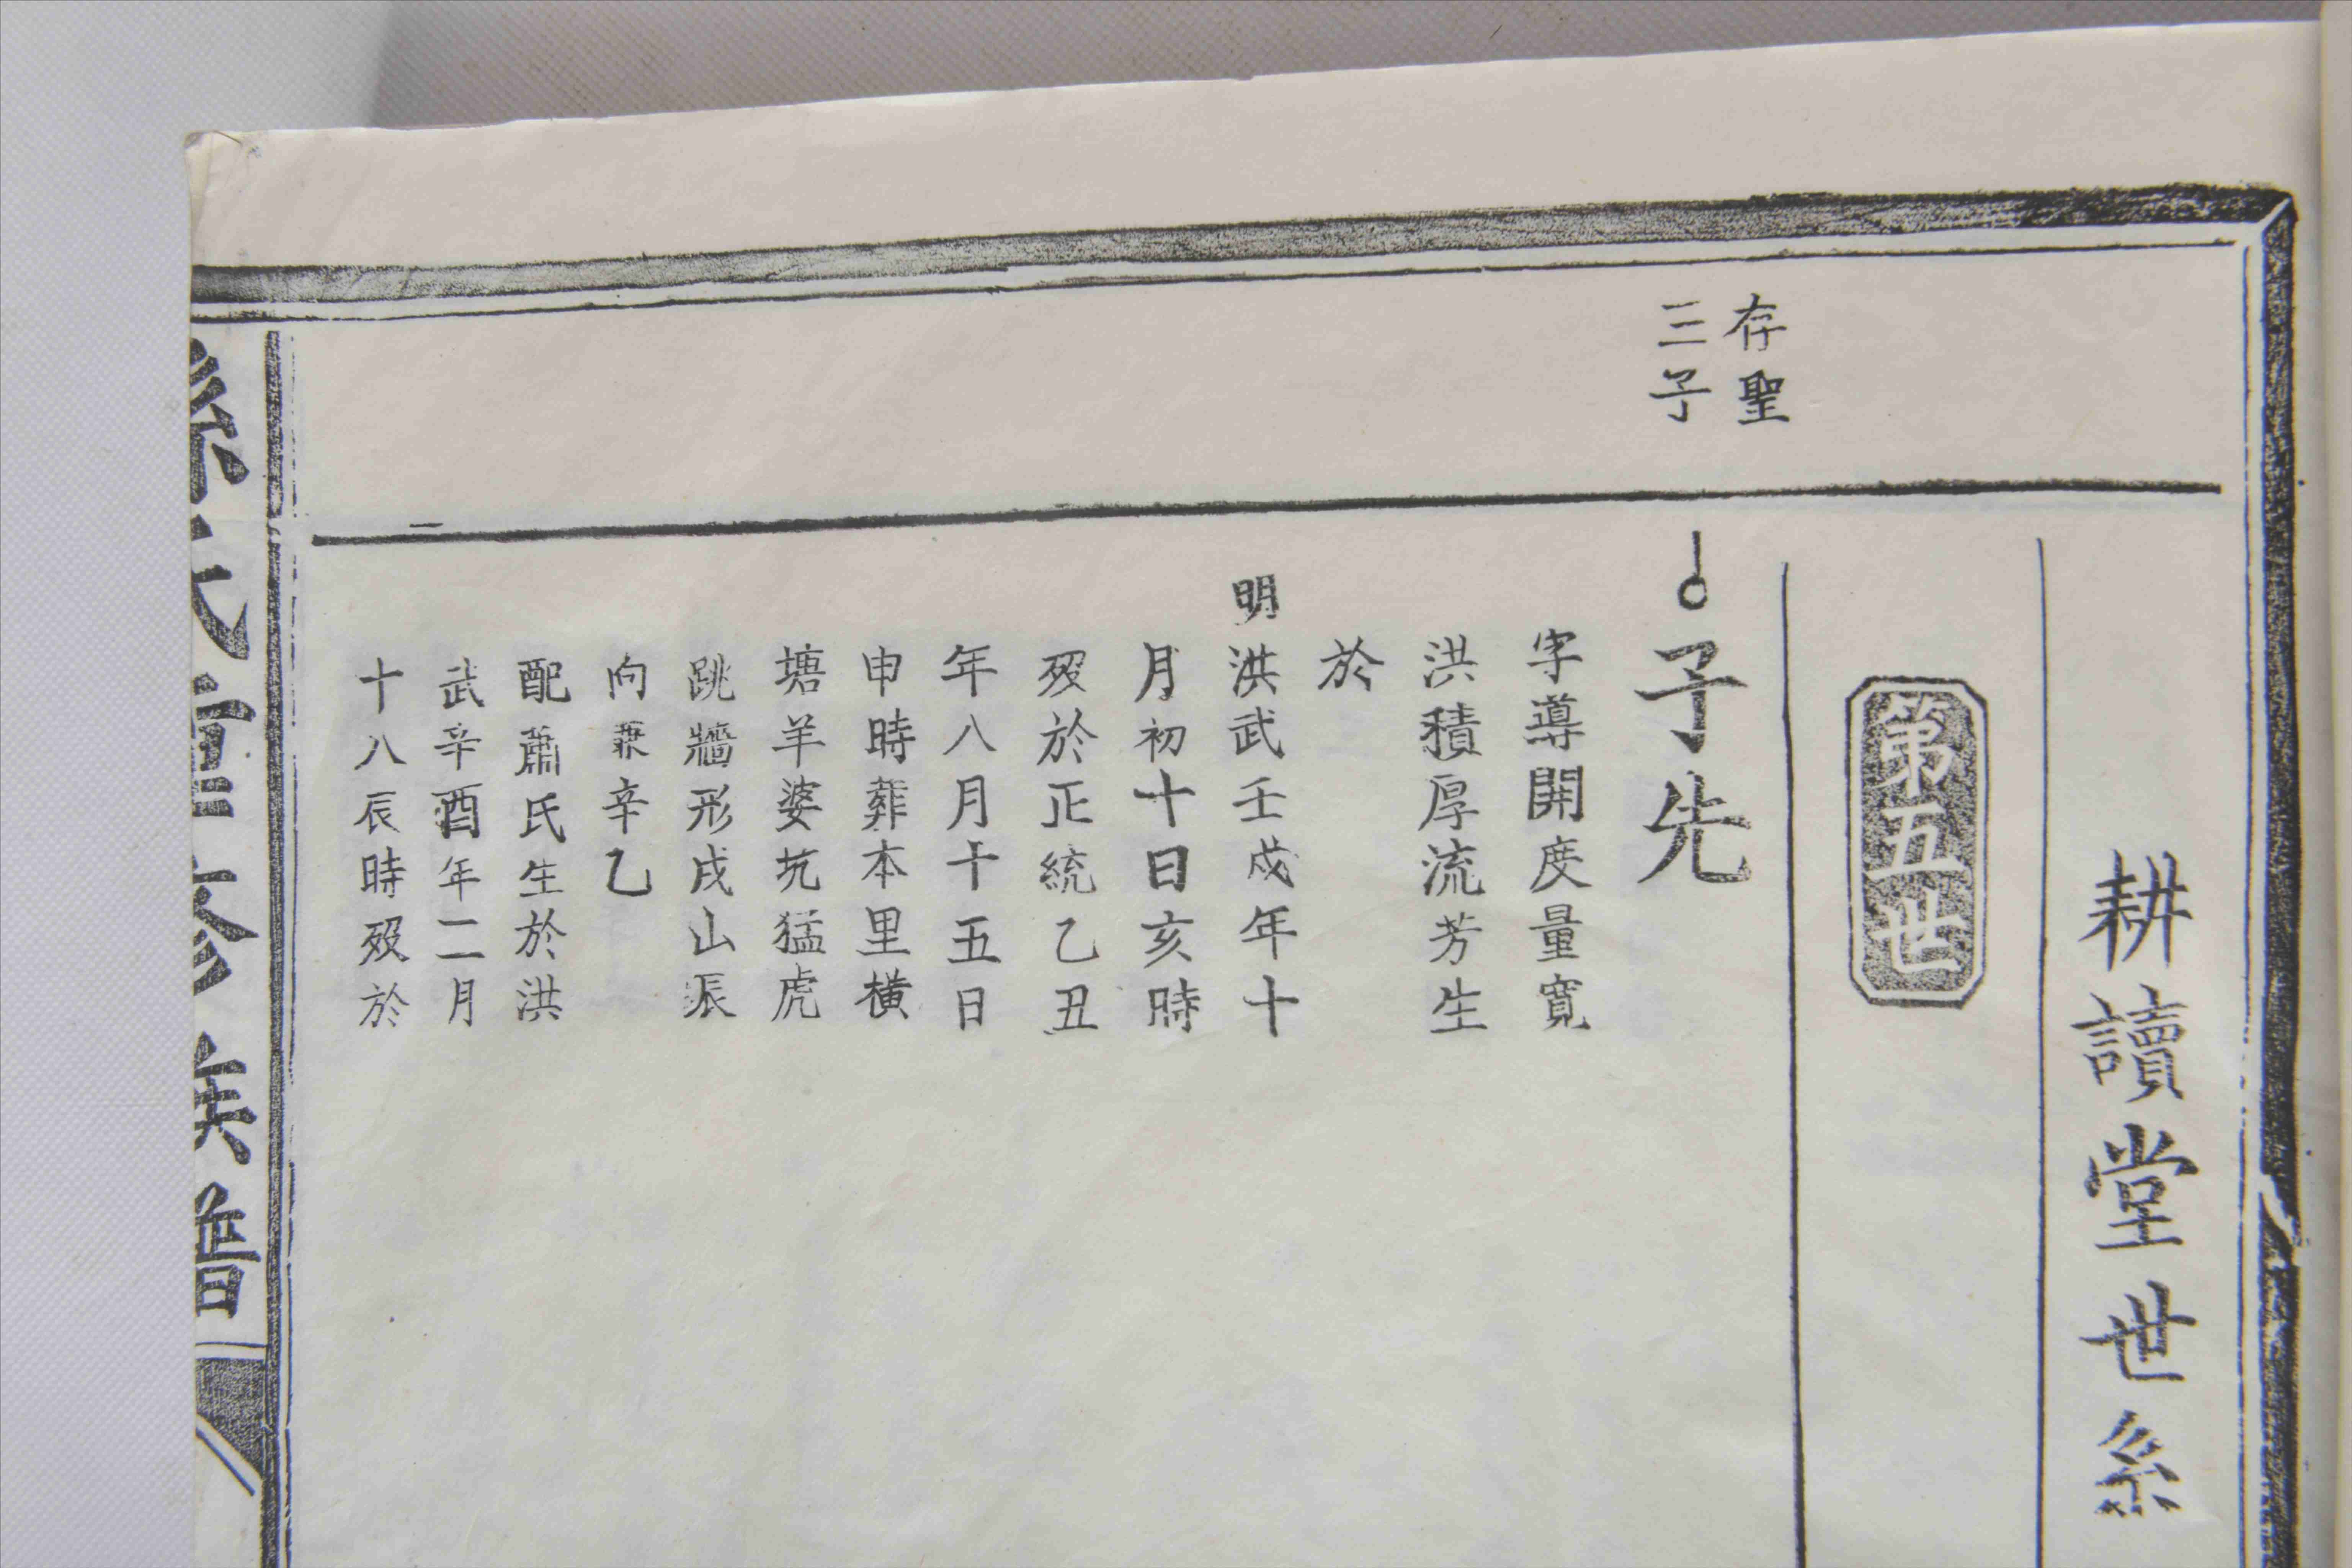 耕讀堂世系
第五世
存聖
三子
子先
字導開度量寬
洪積厚流芳生
於
明洪武壬戌年十
月初十日亥時
歿於正統乙丑
年八月十五日
申時葬本里橫
塘羊婆坑猛虎
跳牆形戌山辰
向兼辛乙
配蕭氏生於洪
武辛酉年二月
十八辰時歿於
族譜